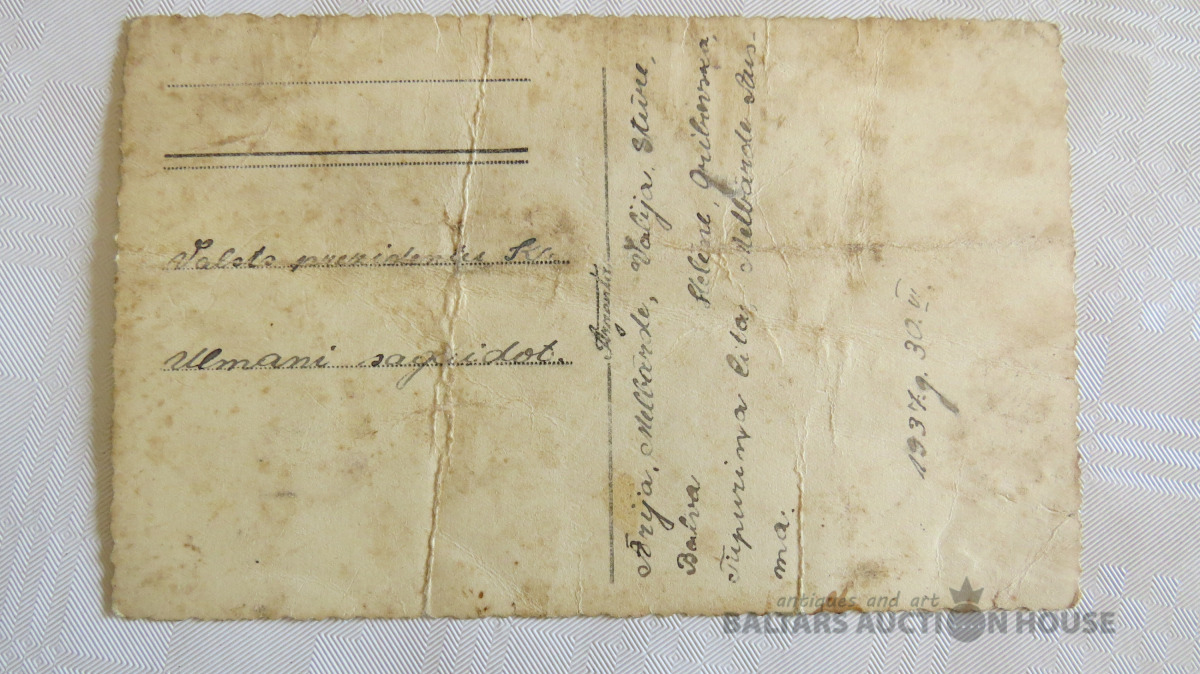 Valsts prezidentu K.
Ulmani sagaidot.
Ārija. Melbārde, Valija. Stūre,
Balva Helēne, Gribovska,
Lita, Melbārde Aus-
ma.
1937.g. 30.VI.
antiques and art
BALTARS AUCTION HOUSE